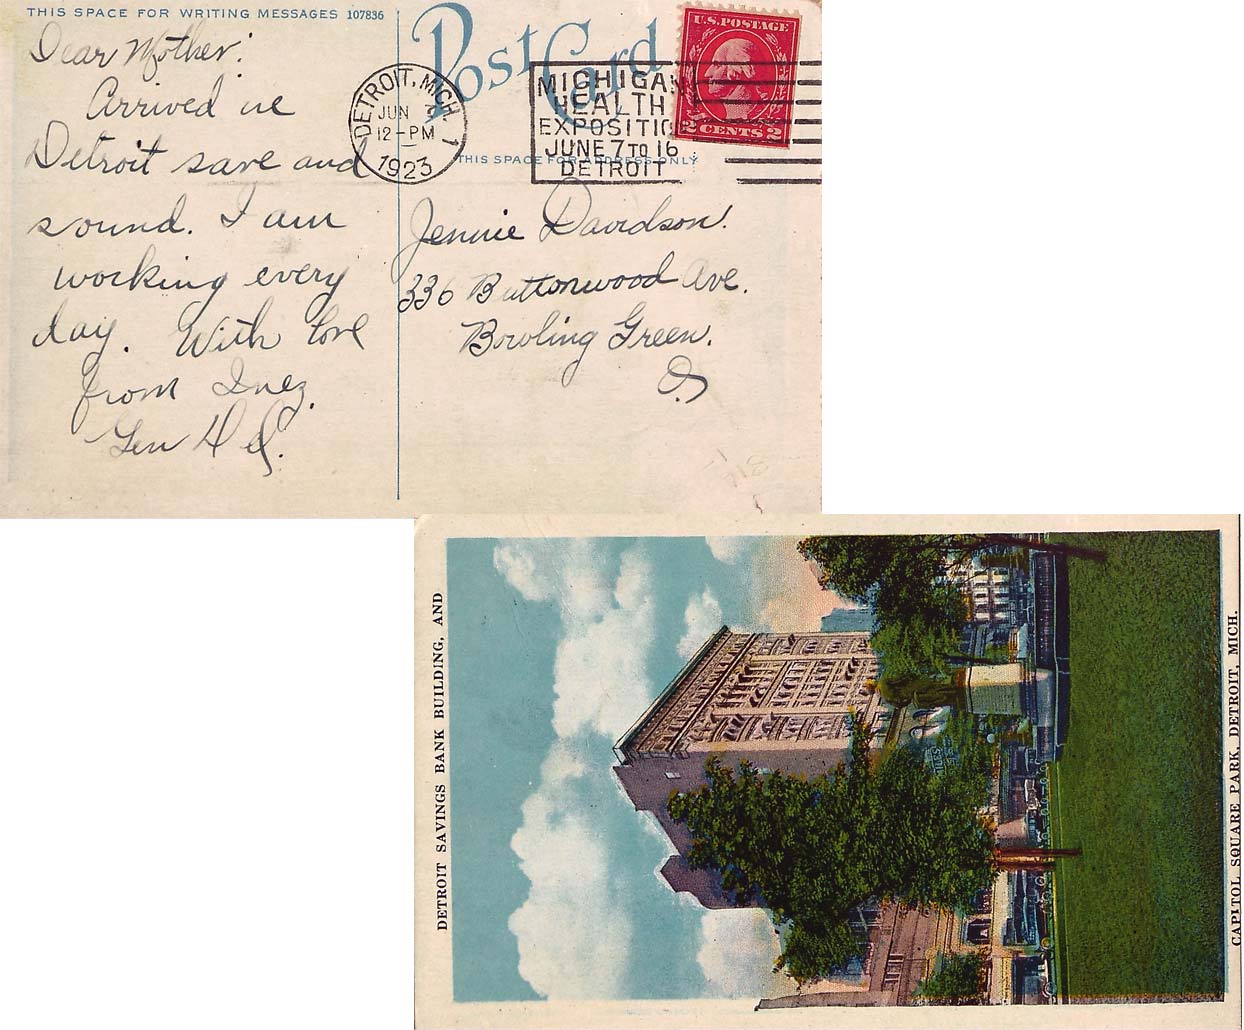 THIS SPACE FOR WRITING MESSAGES 107836
Dear Mother:
Arrived in
Detroit save and
sound. I am
working every
day. With love
from Inez.
Gen Del.
Post Card
THIS SPACE FOR ADDRESS ONLY
DETROIT, MICH. 1
JUN 7
12-PM
1923
MICHIGAN
HEALTH
EXPOSITIO
JUNE 7 TO 16
DETROIT
U.S. POSTAGE
2 CENTS 2
Jennie Davidson.
336 Buttonwood Ave.
Bowling Green.
O.
DETROIT SAVINGS BANK BUILDING, AND
CAPITOL SQUARE PARK, DETROIT, MICH.